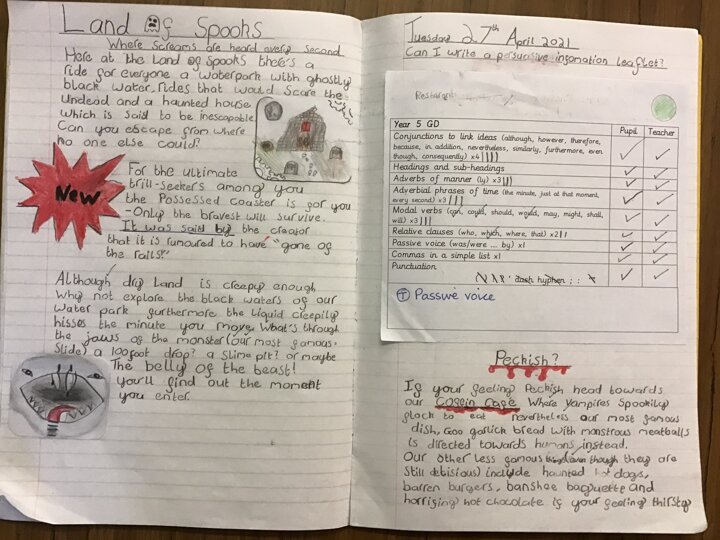 Land of Spooks
Where screams are heard every second
Here at the Land of Spooks there's a
ride for everyone a waterpark with ghostly
black water, rides that would scare the
undead and a haunted house
which is said to be inescapable
Can you escape from where
no one else could?
New
For the ultimate
trill-seekers among you
the Possessed coaster is for you
-Only the bravest will survive.
It was said by the creator
that it is rumoured to have "gone of
the rails!"
Although dry land is creepy enough
why not explore the black waters of our
water park furthermore the liquid creepily
hisses the minute you move. What's through
the jaws of the monster (our most famous
slide) a 100 foot drop? a slime pit? or maybe
The belly of the beast!
you'll find out the moment
you enter.
Tuesday 27th April 2021
Can I write a persuasive infomation leaflet?
Restarant
Year 5 GD
Pupil
Teacher
Conjunctions to link ideas (although, however, therefore,
because, in addition, nevertheless, similarly, furthermore, even
though, consequently) x4 ||||
Headings and sub-headings
Adverbs of manner (ly) x3 |||
Adverbial phrases of time (the minute, just at that moment,
every second) x3 |||
Modal verbs (can, could, should, would, may, might, shall,
will) x3 |||
Relative clauses (who, which, where, that) x2 ||
Passive voice (was/were ... by) x1
Commas in a simple list x1
Punctuation
dash hyphen ; :
T Passive voice
Peckish?
If your feeling Peckish head towards
our Coffin Cafe Where Vampires Spookily
flock to eat nevertheless our most famous
dish, Goo garlick bread with monstrous meatballs
is directed towards humans instead.
Our other less famous (even though they are
still delisious) include haunted hot dogs,
barren burgers, banshee baguette and
horrifing hot chocolate if your feeling thirsty